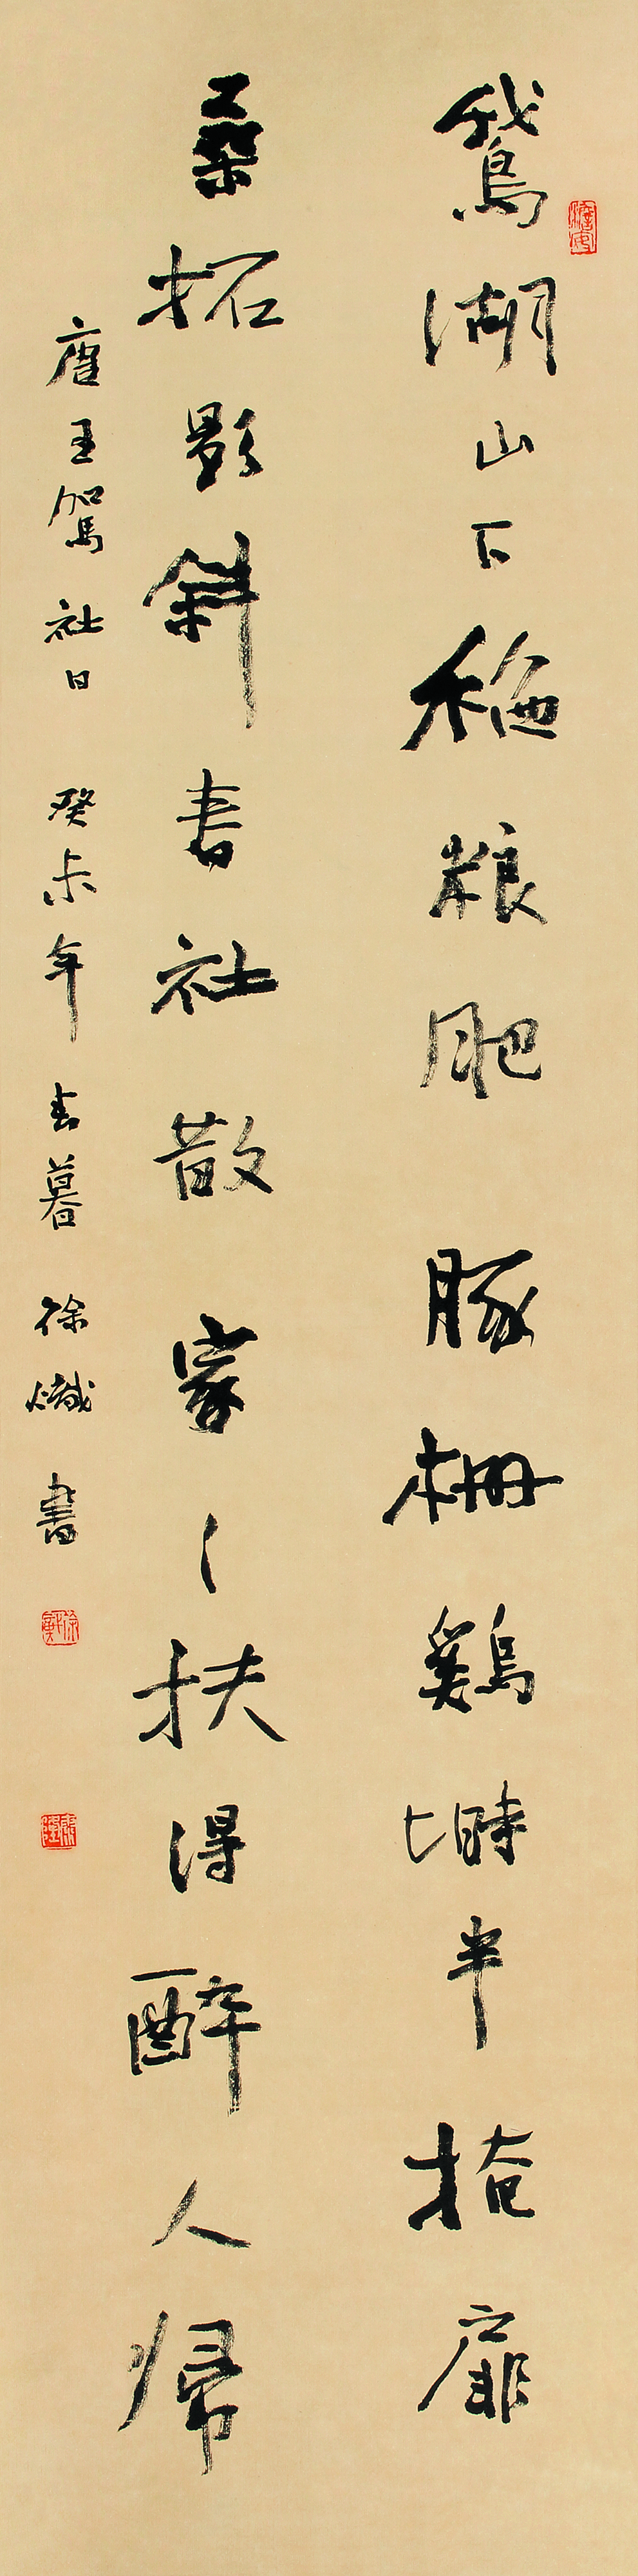 鵞湖山下稻粮肥豚栅鷄塒半掩扉
桑拓影斜春社散家々扶得醉人帰
唐王駕社日 癸未年春暮徐熾書